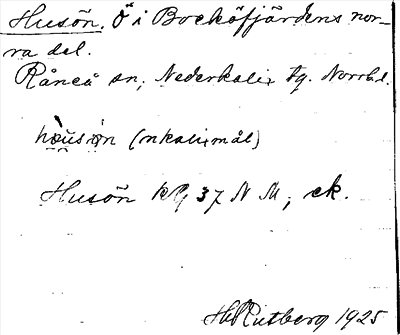 Husön. Ö i Bocköfjärdens nor-
ra del.
Råneå sn, Nederkalix tg. Norrb.l.
(nkalixmål)
Husön kg 37 N M, ek.
Hd Rutberg 1925